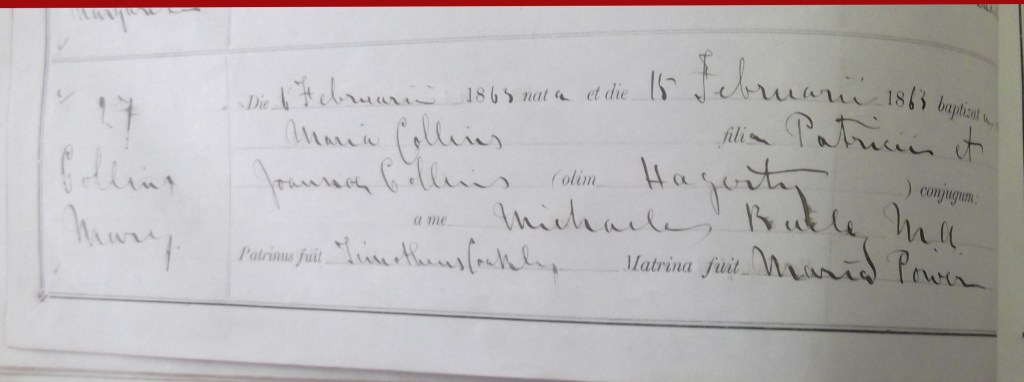 Margaret
27
Collins
Mary
Die 6 Februarii 1863 nata et die 15 Februarii 1863 baptizata
Maria Collins filia Patricii et
Joannae Collins (olim Hagerty ) conjugum:
a me Michaele M.A.
Patrinus fuit Timotheus Coakley Matrina fuit Maria Power